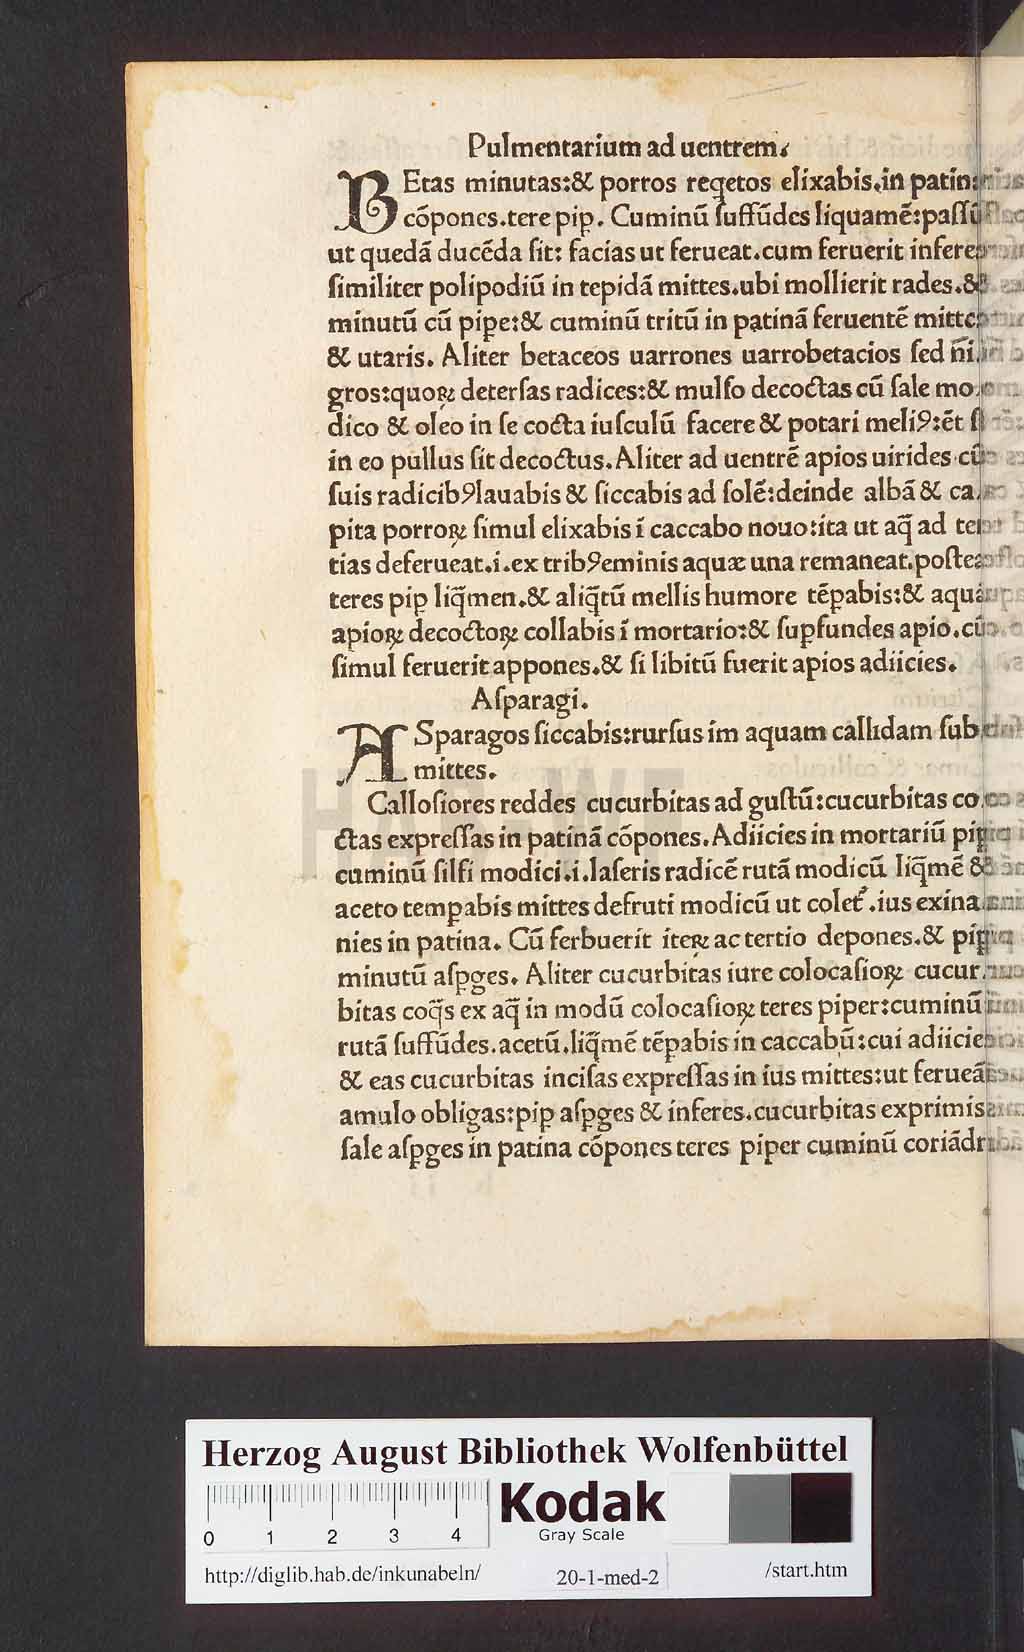 Pulmentarium ad uentrem.
BEtas minutas:& porros reqetos elixabis.in patin
cōpones.tere pip̱. Cuminū ſuffūdes liquamē:paſſū
ut quedā ducēda ſit: facias ut ferueat.cum feruerit inferes
ſimiliter polipodiū in tepidā mittes.ubi mollierit rades.&
minutū cū pipe:& cuminū tritū in patinā feruentē mittes
& utaris. Aliter betaceos uarrones uarrobetacios ſed ni̅.
gros:quoꝝ deterſas radices:& mulſo decoctas cū ſale mo
dico & oleo in ſe cocta iuſculū facere & potari meliꝰ:ēt ſi
in eo pullus ſit decoctus. Aliter ad uentrē apios uirides cū
ſuis radicibꝰlauabis & ſiccabis ad ſolē:deinde albā & ca
pita porroꝝ ſimul elixabis ī caccabo nouo:ita ut aq̄ ad ter
tias deferueat.i.ex tribꝰeminis aquæ una remaneat.poſtea
teres pip̱ liq̄men.& aliq̄tū mellis humore tēp̱abis:& aquā
apioꝝ decoctoꝝ collabis ī mortario:& ſup̱fundes apio.cū
ſimul feruerit appones.& ſi libitū fuerit apios adiicies.
Aſparagi.
ASparagos ſiccabis:rurſus im aquam callidam ſub
mittes.
Calloſiores reddes cucurbitas ad guſtū:cucurbitas co
ctas expreſſas in patinā cōpones. Adiicies in mortariū pip̱
cuminū ſilfi modici.i.laſeris radicē rutā modicū liq̄mē &
aceto temp̱abis mittes defruti modicū ut colet᷑.ius exina
nies in patina. Cū ferbuerit iteꝝ ac tertio depones.& pip̱
minutū aſp̱ges. Aliter cucurbitas iure colocaſioꝝ cucur
bitas coq̄s ex aq̄ in modū colocaſioꝝ teres piper:cuminū
rutā ſuffūdes.acetū.liq̄mē tēp̱abis in caccabū:cui adiicies
& eas cucurbitas inciſas expreſſas in ius mittes:ut ferueā
amulo obligas:pip̱ aſp̱ges & inferes.cucurbitas exprimis
ſale aſp̱ges in patina cōpones teres piper cuminū coriādri
HAB-WF
Herzog August Bibliothek Wolfenbüttel
0 1 2 3 4
Kodak
Gray Scale
http://diglib.hab.de/inkunabeln/ 20-1-med-2 /start.htm